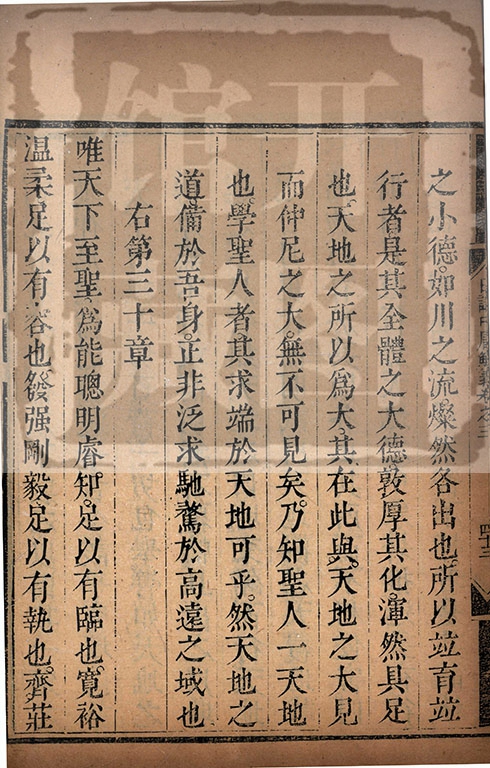 之小德。如川之流。燦然各出也。所以竝育竝
行者是其全體之大德。敦厚其化。渾然具足
也。天地之所以爲大。其在此與。天地之大見
而仲尼之大。無不可見矣。乃知聖人一天地
也。學聖人者。其求端於天地可乎。然天地之
道備於吾身。正非泛求馳騖於高遠之域也
右第三十章
唯天下至聖。爲能聰明睿知。足以有臨也。寬裕
温柔足以有容也。發强剛毅足以有執也。齊莊